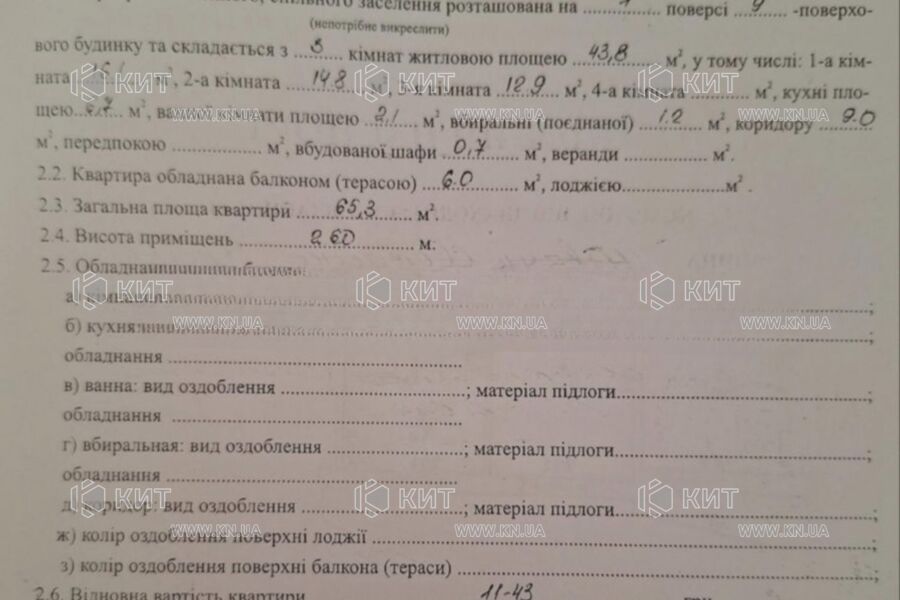 заселення розташована на 1 поверсі 9 -поверхо-
(непотрібне викреслити)
вого будинку та складається з 3 кімнат житловою площею 43,8 м², у тому числі: 1-а кім-
ната м², 2-а кімната 14.8 м², 3-я кімната 12.9 м², 4-а кімната м², кухні пло-
щею м², ванної кімнати площею 2,1 м², вбиральні (поєднаної) 1.2 м², коридору 9.0
м², передпокою м², вбудованої шафи 0,7 м², веранди м².
2.2. Квартира обладнана балконом (терасою) 6.0 м², лоджією м².
2.3. Загальна площа квартири 65,3 м².
2.4. Висота приміщень 2.60 м.
2.5.
КИТ КИТ КИТ
б) кухня
WWW.KN.UA WWW.KN.UA WWW.KN.UA
обладнання
в) ванна: вид оздоблення ; матеріал підлоги ;
обладнання
г) вбиральная: вид оздоблення ; матеріал підлоги ;
обладнання
КИТ КИТ КИТ
д) коридор: вид оздоблення ; матеріал підлоги ;
WWW.KN.UA WWW.KN.UA WWW.KN.UA
ж) колір оздоблення поверхні лоджії ;
з) колір оздоблення поверхні балкона (тераси) ;
2.6. Відновна вартість квартири 11-43 грн